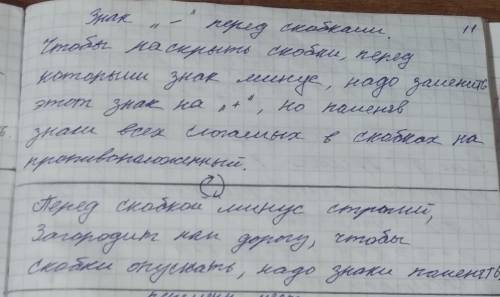 Знак „ – “ перед скобками.
11
Чтобы раскрыть скобки, перед
которыми знак минус, надо заменить
этот знак на „+“, но поменяв
знаки всех слогаемых в скобках на
противоположенный.
Перед скобкой минус строгий,
Загородит нам дорогу, чтобы
скобки опускать, надо знаки поменять